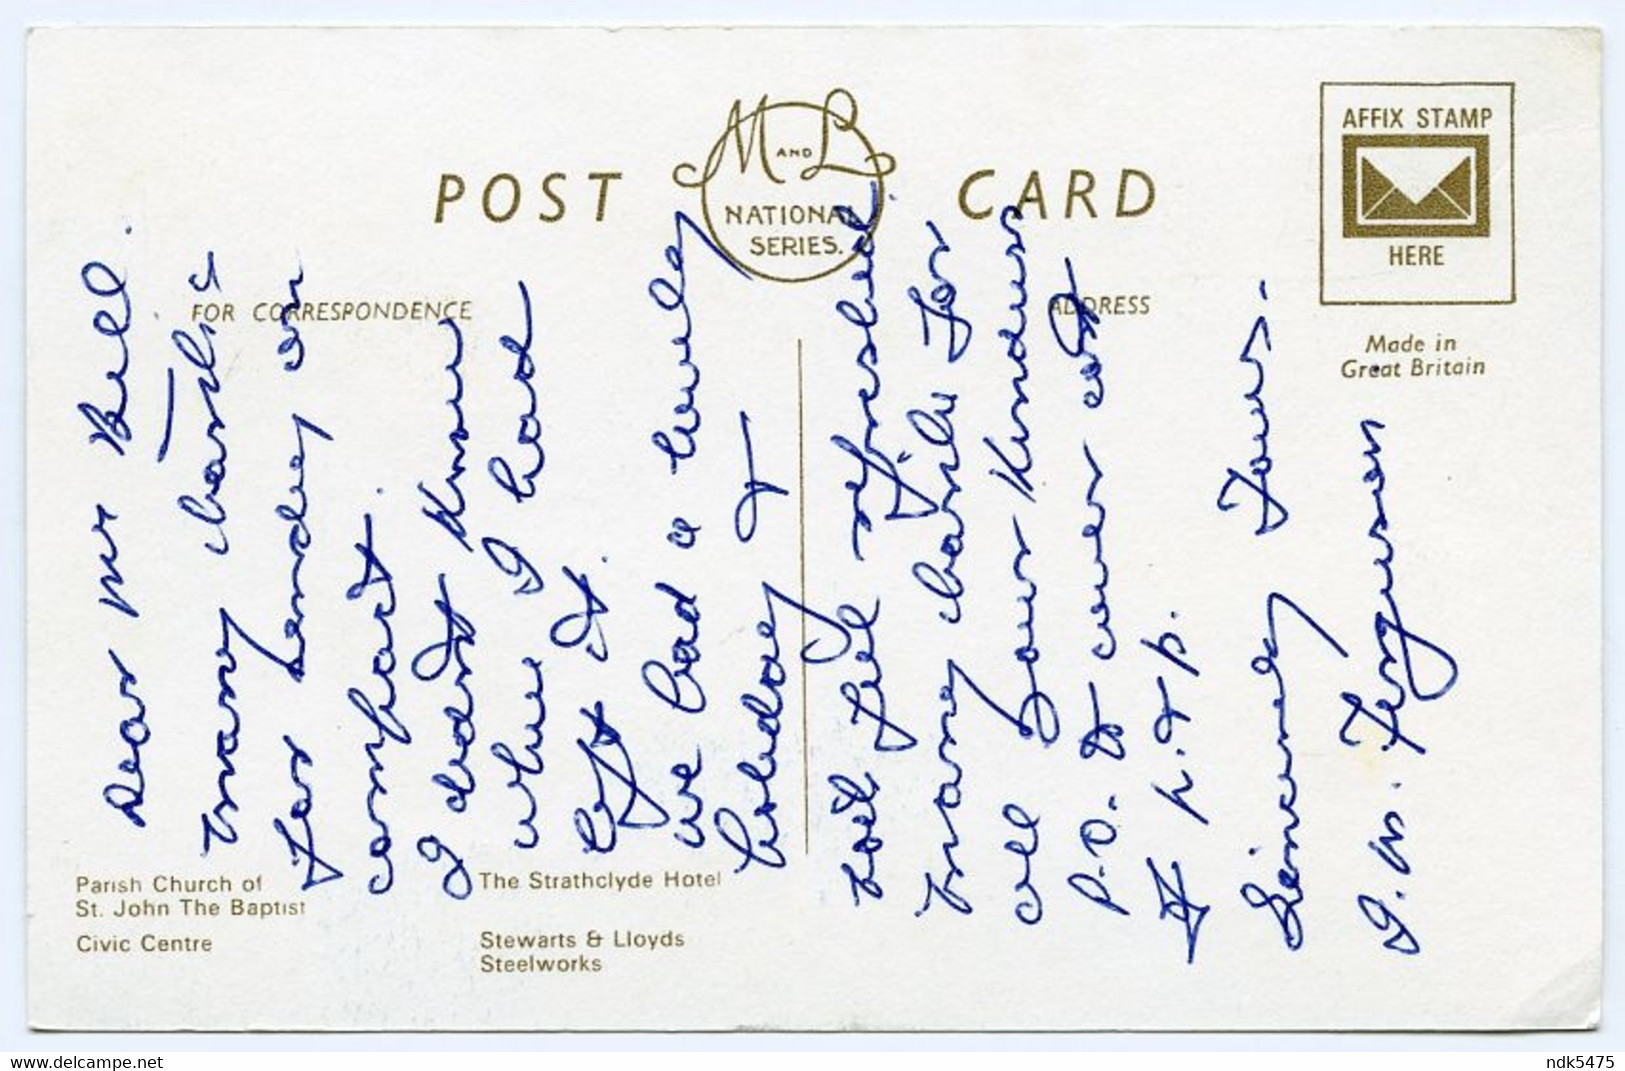 POST CARD
M AND L
NATIONAL
SERIES.
AFFIX STAMP
HERE
FOR CORRESPONDENCE
ADDRESS
Made in
Great Britain
Dear Mr Bell.
Many thanks
for sending on
compact.
I didnt know
where I had
left it.
We had a lovely
holiday &
feel refreshed.
Many thanks for
all your kindness
P.O. to cover cost
of p. & p.
Sincerely Yours.
I. W. Ferguson
Parish Church of
St. John The Baptist
Civic Centre
The Strathclyde Hotel
Stewarts & Lloyds
Steelworks
ndk5475